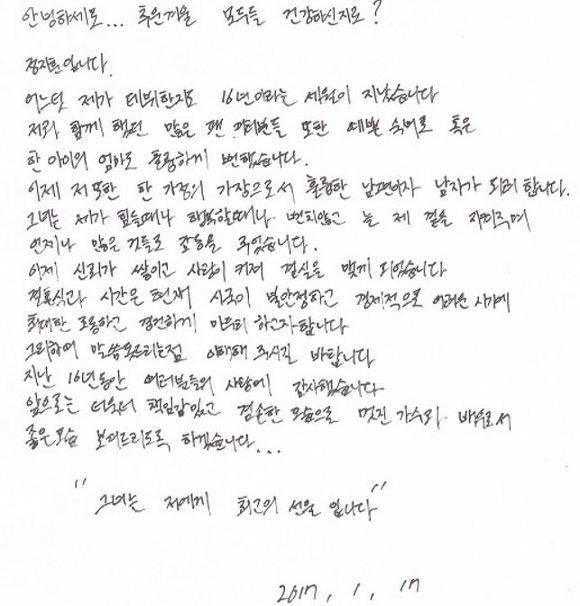 안녕하세요... 추운겨울 모두들 건강하신지요?
정지훈입니다.
어느덧 제가 데뷔한지도 16년이라는 세월이 지났습니다
저와 함께 했던 많은 팬 여러분들 또한 예쁜 숙녀로 혹은
한 아이의 엄마로 훌륭하게 변했습니다.
이제 저 또한 한 가정의 가장으로서 훌륭한 남편이자 남자가 되려 합니다.
그녀는 제가 힘들때나 행복할때나 변치않고 늘 제 곁을 지켜주며
언제나 많은 것들로 감동을 주었습니다.
이제 신뢰가 쌓이고 사랑이 커져 결실을 맺게 되었습니다
결혼식과 시간은 현재 시국이 불안정하고 경제적으로 어려운 시기에
최대한 조용하고 경건하게 마무리 하고자합니다
그리하여 말씀못드리는점 이해해 주시길 바랍니다
지난 16년동안 여러분들의 사랑에 감사했습니다
앞으로는 더욱더 책임감있고 겸손한 모습으로 멋진 가수와 배우로서
좋은모습 보여드리도록 하겠습니다...
"그녀는 저에게 최고의 선물 입니다"
2017, 1, 17